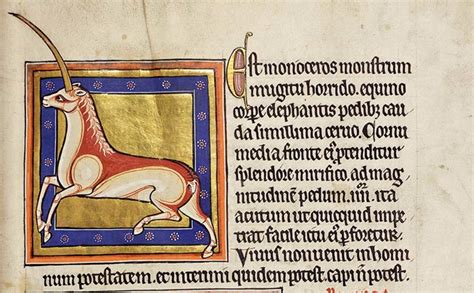 Est monoceros monstrum
mugitu horrido. equino
corpe. elephantis pedib; cau
da simillima ceruo. Cornu
media fronte ei᷒ ꝓtenditur
splendore mirifico. ad mag
nitudinē pedum .iiii. ita
acutum ut quicquid impe
tat facile ictu ei᷒ ꝑforetur.
Viuus non uenit in homi
num potestatem. et interimi quidem potest. capi ñ potest.